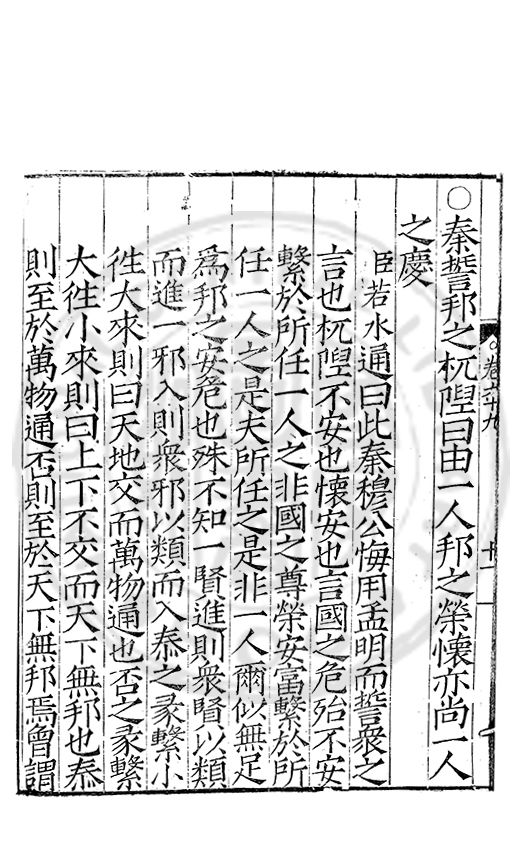 ○秦誓邦之杌隉曰由一人邦之榮懷亦尚一人
之慶
臣若水通曰此秦穆公悔用孟明而誓衆之
言也杌隉不安也懷安也言國之危殆不安
繫於所任一人之非國之尊榮安富繫於所
任一人之是夫所任之是非一人爾似無足
爲邦之安危也殊不知一賢進則衆賢以類
而進一邪入則衆邪以類而入泰之彖繫小
徃大來則曰天地交而萬物通也否之彖繫
大徃小來則曰上下不交而天下無邦也泰
則至於萬物通否則至於天下無邦焉曾謂
卷六十九
十一